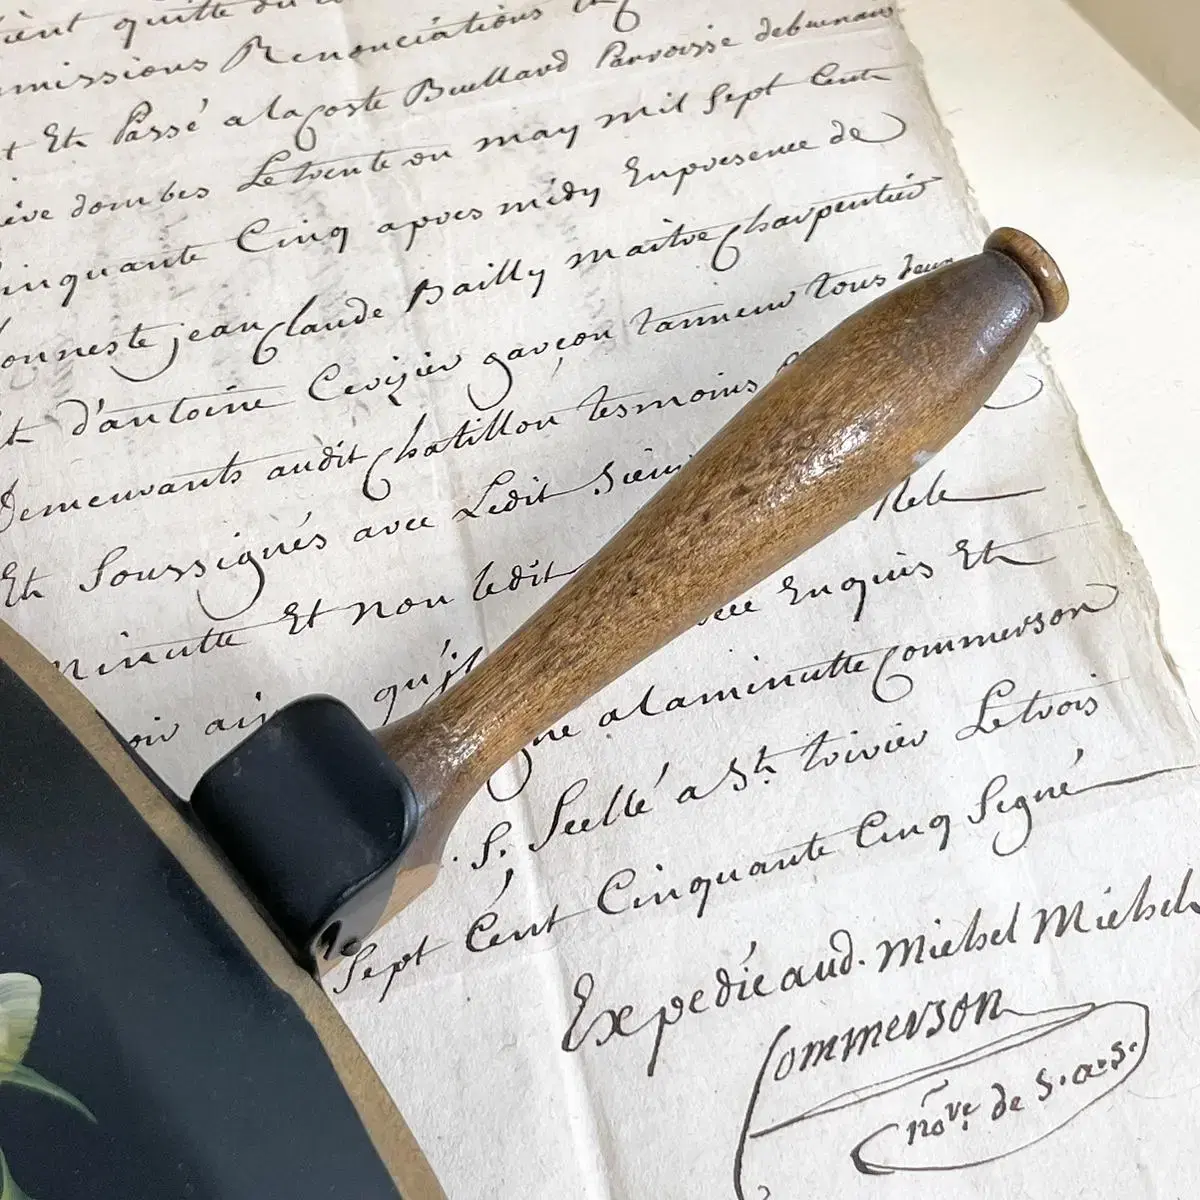 quitte
missions Renonciations
Et Passé a lacoste Buellard Parroisse
dombes Le trente du may mil Sept Cent
inquante Cinq apres midy En presence de
honneste jean Claude Bailly maitre Charpentier
Et d'antoine Cerizier garçon tanneur tous deux
Demeurants audit Chatillon tesmoins
Et Soussignés avec Ledit Sieur
minutte Et non ledit
qu'il Enquis Et
a la minutte Commerson
S. Scellé a St trivier Le trois
Sept Cent Cinquante Cinq Signé
Expedié aud. Michel Michel
Commerson
nore de S.A.S.